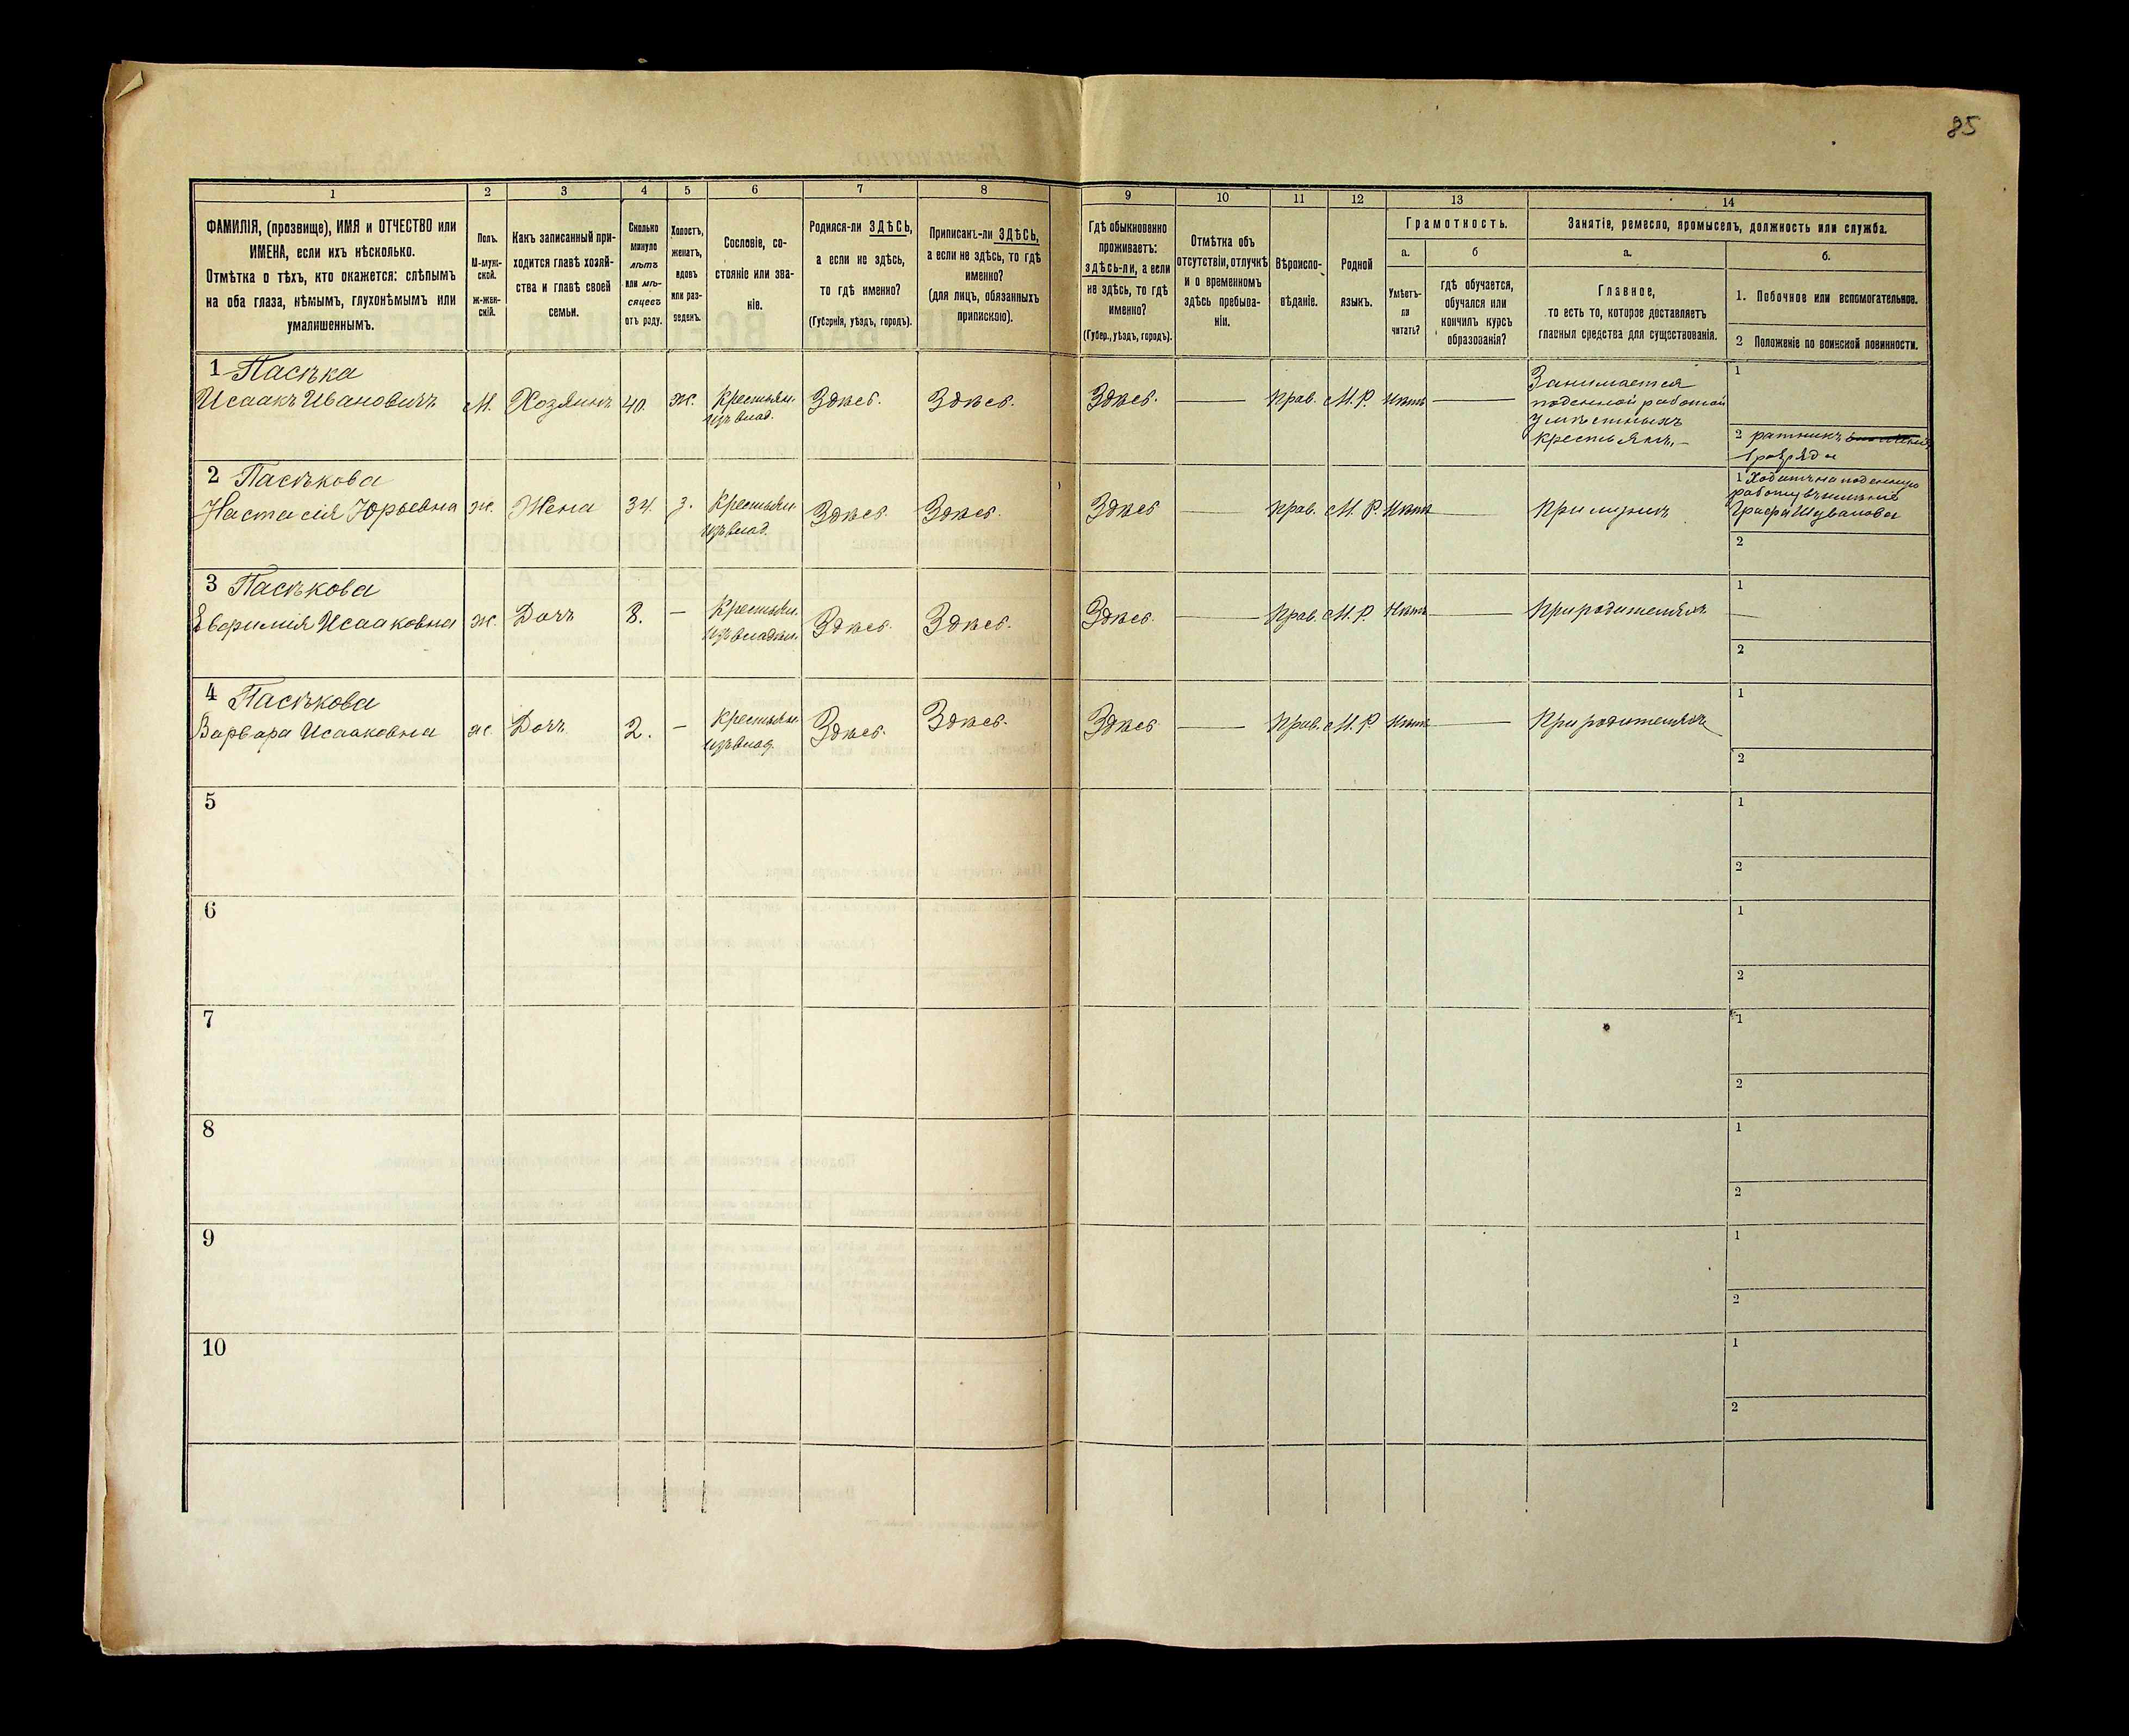 85
1 2 3 4 5 6 7 8 9 10 11 12 13 14
ФАМИЛІЯ, (прозвище), ИМЯ и ОТЧЕСТВО или
ИМЕНА, если ихъ нѣсколько.
Отмѣтка о тѣхъ, кто окажется: слѣпымъ
на оба глаза, нѣмымъ, глухонѣмымъ или
умалишеннымъ.
Полъ.
М-муж-
ской.
Ж-жен-
скій.
Какъ записанный при-
ходится главѣ хозяй-
ства и главѣ своей
семьи.
Сколько
минуло
лѣтъ
или мѣ-
сяцевъ
отъ роду.
Холостъ,
женатъ,
вдовъ
или раз-
веденъ.
Сословіе, со-
стояніе или зва-
ніе.
Родился-ли ЗДѢСЬ,
а если не здѣсь,
то гдѣ именно?
(Губернія, уѣздъ, городъ).
Приписанъ-ли ЗДѢСЬ,
а если не здѣсь, то гдѣ
именно?
(для лицъ, обязанныхъ
припискою).
Гдѣ обыкновенно
проживаетъ:
здѣсь-ли, а если
не здѣсь, то гдѣ
именно?
(Губер., уѣздъ, городъ).
Отмѣтка объ
отсутствіи, отлучкѣ
и о временномъ
здѣсь пребыва-
ніи.
Вѣроиспо-
вѣданіе.
Родной
языкъ.
Грамотность.
а.
Умѣетъ-
ли
читать?
б
гдѣ обучается,
обучался или
кончилъ курсъ
образованія?
Занятіе, ремесло, промыселъ, должность или служба.
а.
Главное,
то есть то, которое доставляетъ
главныя средства для существованія.
б.
1. Побочное или вспомогательное.
2 Положеніе по воинской повинности.
1 Пасѣка
Исаакъ Ивановичъ
М.
Хозяинъ
40.
ж.
Крестьян.
изъ влад.
Здѣсь.
Здѣсь.
Здѣсь.
—
Прав.
М.Р.
Нѣтъ
—
Занимается
поденной работой
у мѣстныхъ
крестьянъ. —
1
2 ратникъ
1 разряда
2 Пасѣкова
Настасія Юрьевна
ж.
Жена
34
з.
Крестьян.
изъ влад.
Здѣсь.
Здѣсь.
Здѣсь
—
Прав.
М.Р.
Нѣтъ
—
При мужѣ
1 Ходитъ на поденную
работу въ имѣніе
Графа Шувалова
2
3 Пасѣкова
Исааковна
ж.
Дочь
8.
—
Крестьян.
изъ владѣл.
Здѣсь.
Здѣсь.
Здѣсь.
—
Прав.
М.Р.
Нѣтъ
—
При родителяхъ
1
—
2
4 Пасѣкова
Варвара Исааковна
ж.
Дочь
2.
—
Крестьян
изъ влад.
Здѣсь.
Здѣсь.
Здѣсь
—
Прав.
М.Р.
Нѣтъ
—
При родителяхъ
1
2
5
1
2
6
1
2
7
1
2
8
1
2
9
1
2
10
1
2